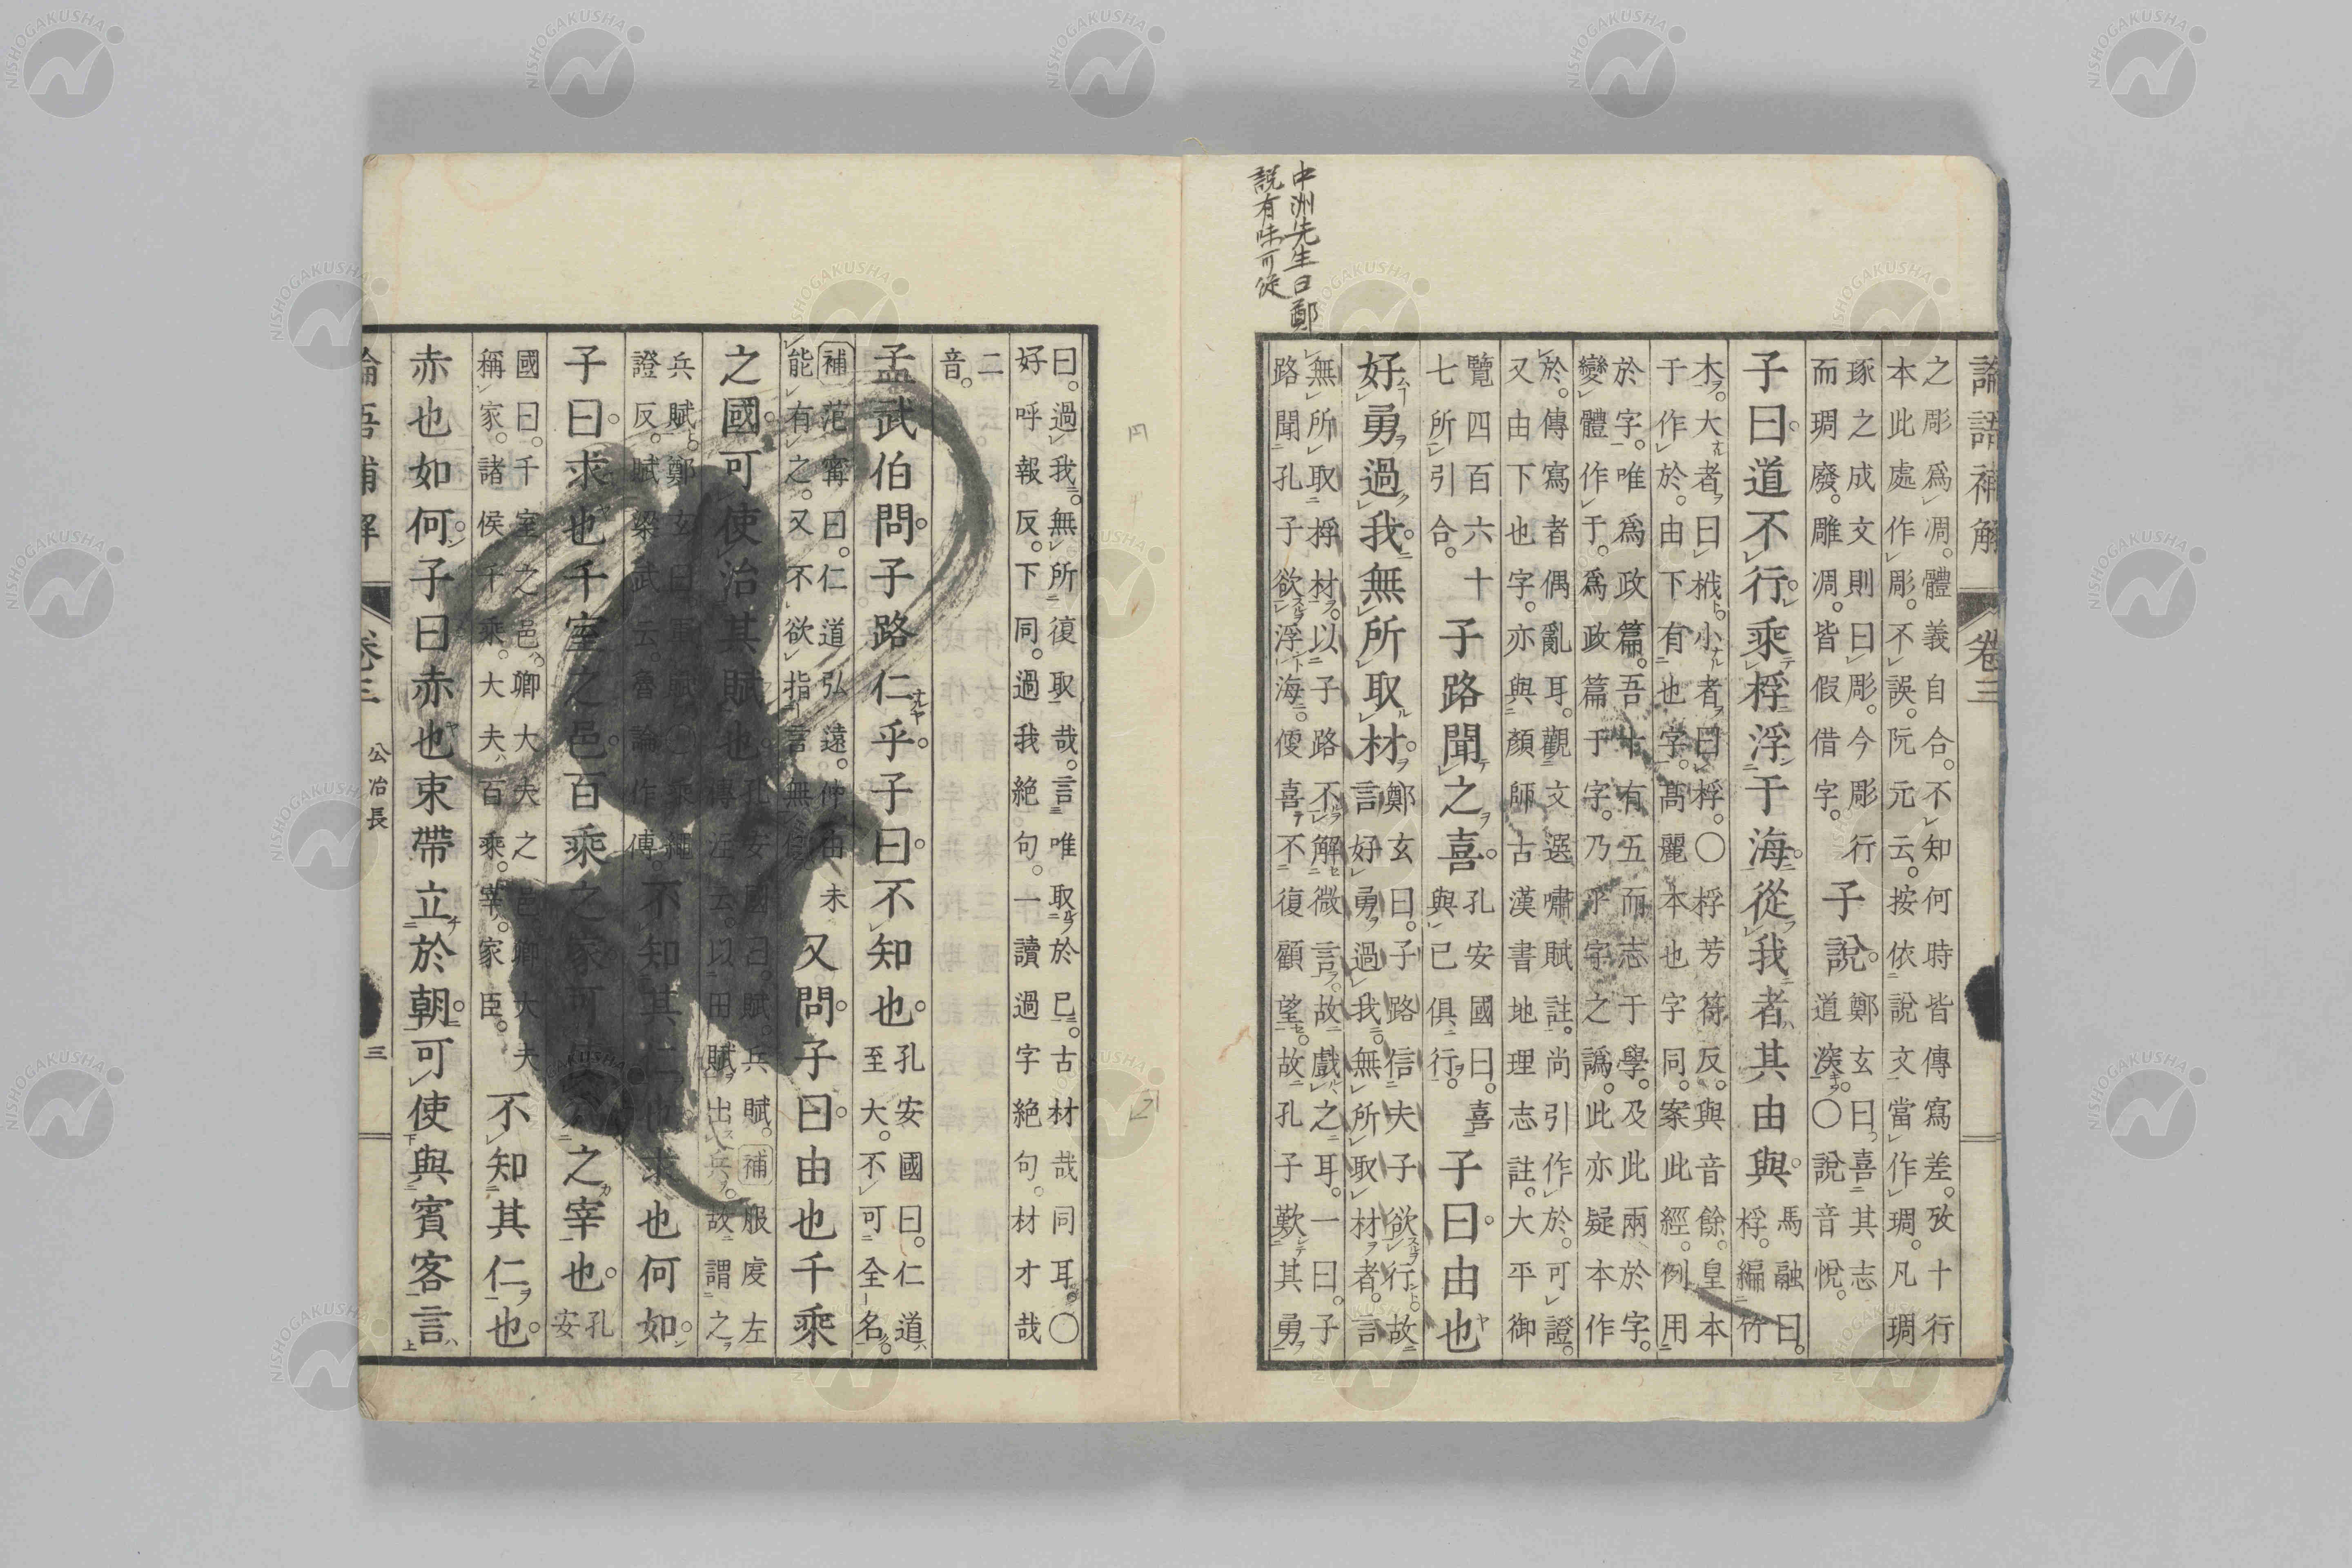 中洲先生曰鄭
說有味可從
論語補解 卷三
之彫爲凋。體義自合。不知何時皆傳寫差。攷十行
本此處作彫。不誤。阮元云。按依說文當作琱。凡琱
琢之成文則曰彫。今彫行
而琱廢。雕凋。皆假借字。
子說。
鄭玄曰。喜其志
道深。〇說音悅。
子曰。道不行。乘桴浮于海。從我者其由與。
馬融曰。
桴。編竹
木。大者曰栰。小者曰桴。〇桴芳符反。與音餘。皇本
于作於。由下有也字。高麗本也字同。案此經。例用
於字。唯爲政篇。吾十有五而志于學。及此兩於字。
變體作于。爲政篇于字。乃乎字之譌。此亦疑本作
於。傳寫者偶亂耳。觀文選嘯賦註。尚引作於。可證。
又由下也字。亦與顏師古漢書地理志註。大平御
覽四百六十
七所引合。
子路聞之喜。
孔安國曰。喜
與已俱行。
子曰。由也
好勇過我。無所取材。
鄭玄曰。子路信夫子欲行。故
言好勇過我。無所取材者。言
無所取桴材。以子路不解微言。故戲之耳。一曰。子
路聞孔子欲浮海。便喜不復顧望。故孔子歎其勇
曰。過我。無所復取哉。言唯取於已。古材哉同耳。〇
好呼報反。下同。過我絕句。一讀過字絕句。材才哉
二
音。
孟武伯問子路仁乎。子曰。不知也。
孔安國曰。仁道
至大。不可全名。
補范甯曰。仁道弘遠。仲由未
能有之。又不欲指言無仁
又問。子曰。由也千乘
之國。可使治其賦也。
孔安國曰。賦。兵賦。補服虔左
傳注云。以田賦出兵。故謂之
兵賦。鄭玄曰軍賦〇乘繩
證反。賦梁武云。魯論作傅。
不知其仁也。求也何如。
子曰。求也千室之邑。百乘之家可使爲之宰也。
孔
安
國曰。千室之邑。卿大夫之邑。卿大夫
稱家。諸侯千乘。大夫百乘。宰。家臣。
不知其仁也。
赤也如何。子曰赤也束帶立於朝。可使與賓客言
論語補解 卷三 公冶長 三